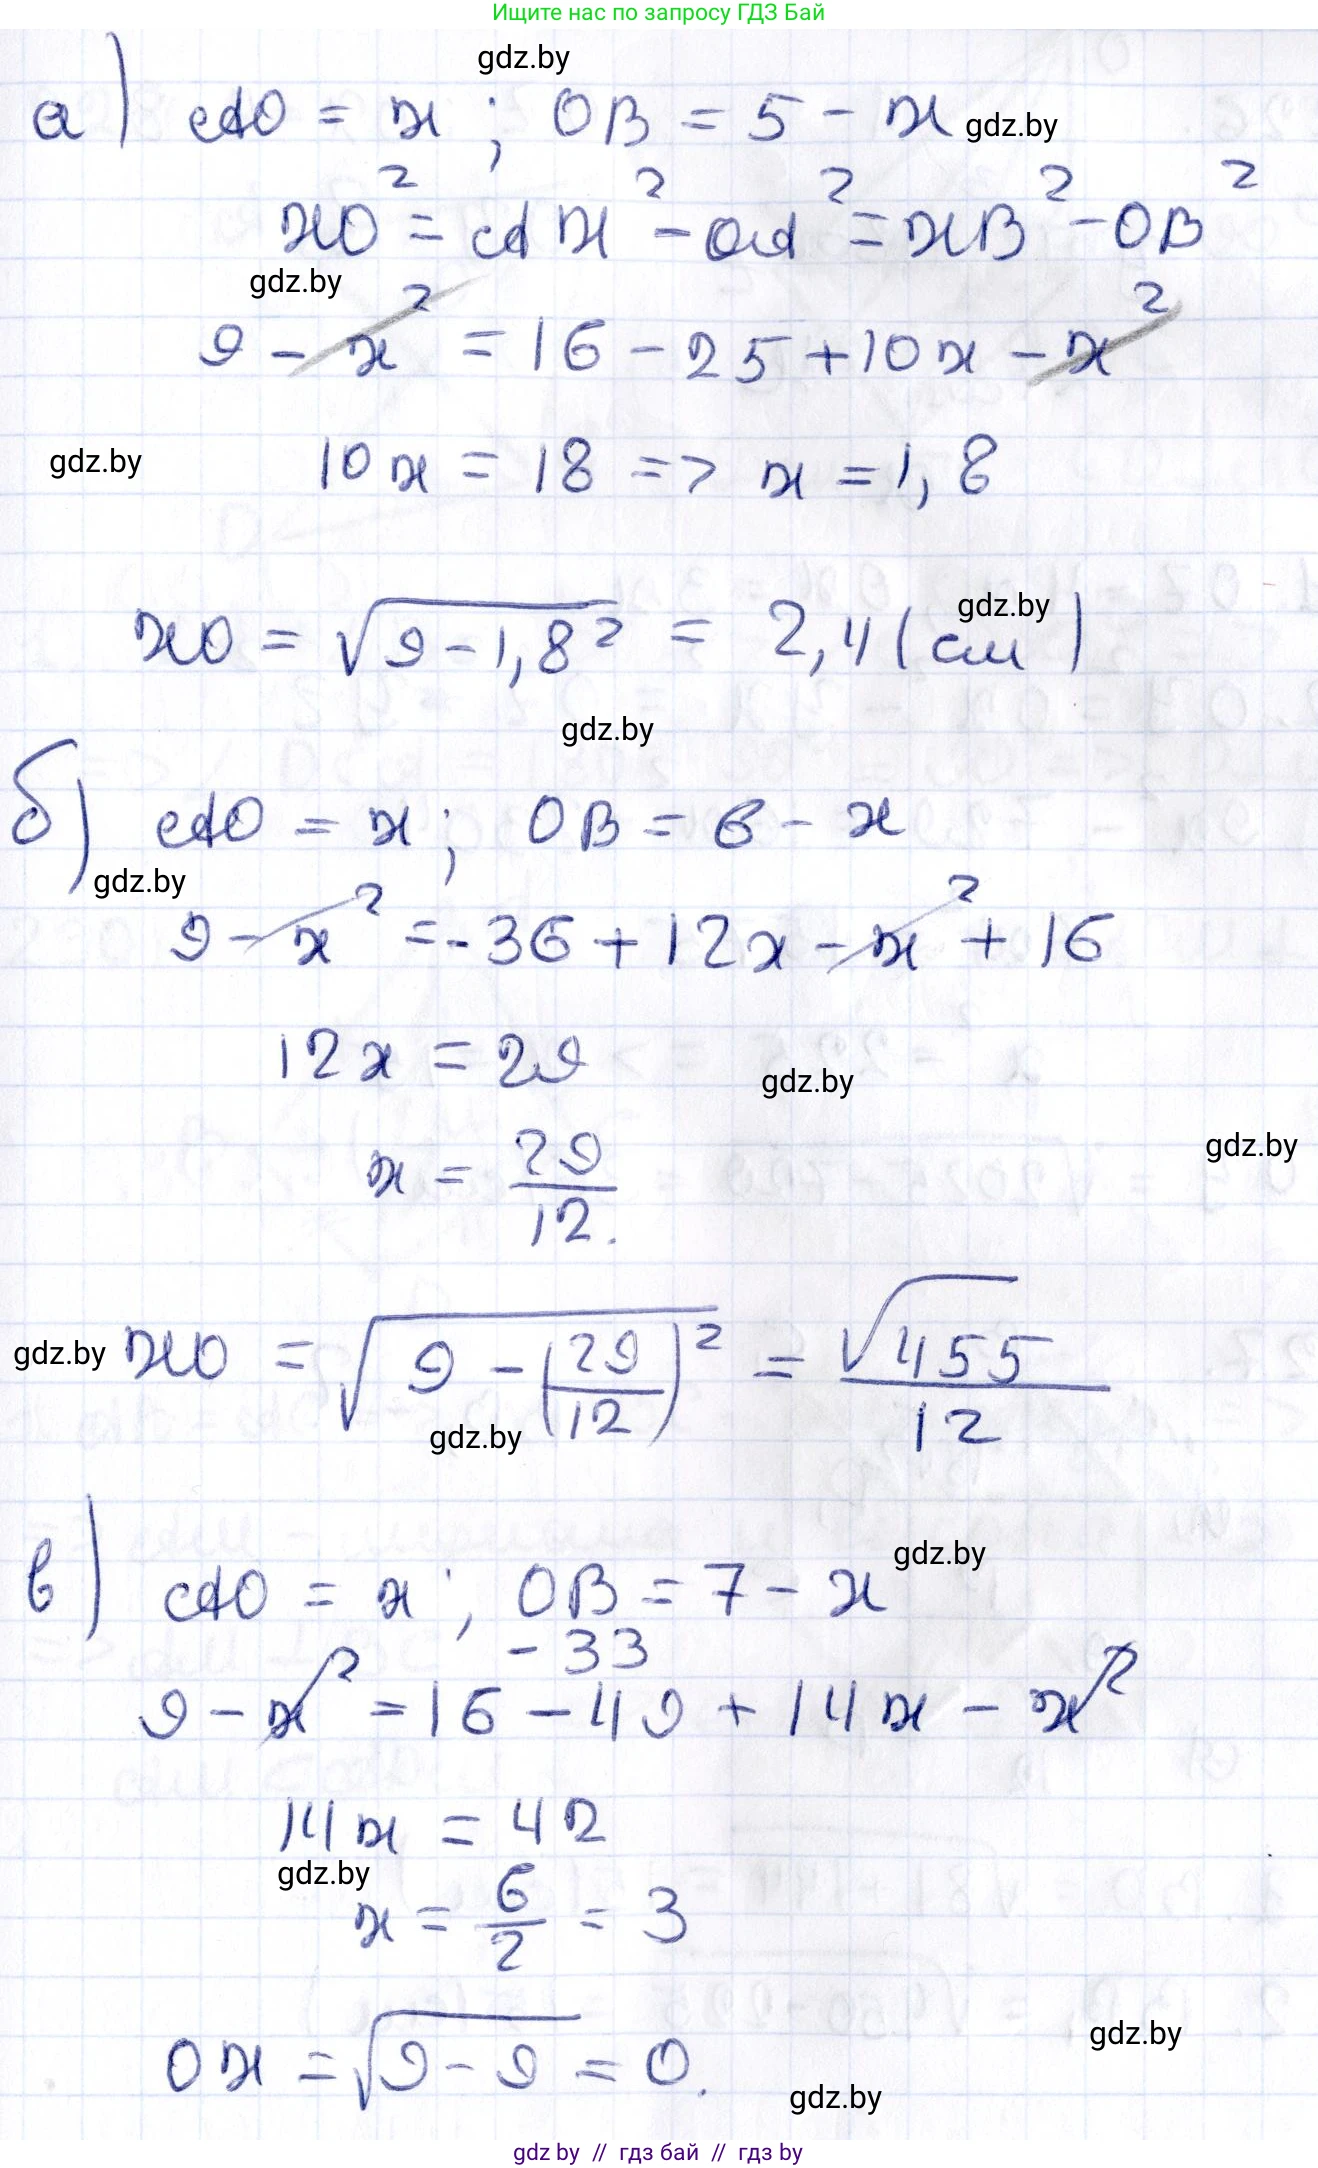 Ищите нас по запросу ГДЗ Бай
gdz.by
а) AO = x ; OB = 5 - x gdz.by
XO² = AX² - OA² = XB² - OB²
gdz.by
9 - x² = 16 - 25 + 10x - x²
gdz.by 10x = 18 => x = 1,8
XO = √(9 - 1,8²) = 2,4 (см) gdz.by
gdz.by
б) AO = x ; OB = 6 - x
gdz.by
9 - x² = -36 + 12x - x² + 16
12x = 29
gdz.by
gdz.by
x = 29/12.
gdz.by XO = √(9 - (29/12)²) = √455/12
gdz.by
в) AO = x ; OB = 7 - x gdz.by
-33
9 - x² = 16 - 49 + 14x - x²
14x = 42
gdz.by
x = 6/2 = 3
gdz.by
OX = √(9 - 9) = 0.
gdz.by
gdz by // гдз бай // гдз by